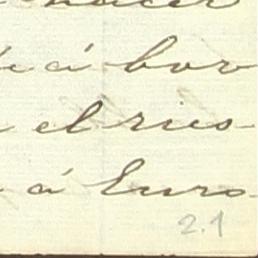 hacer
á bor
el ries-
á Euro-
2.1